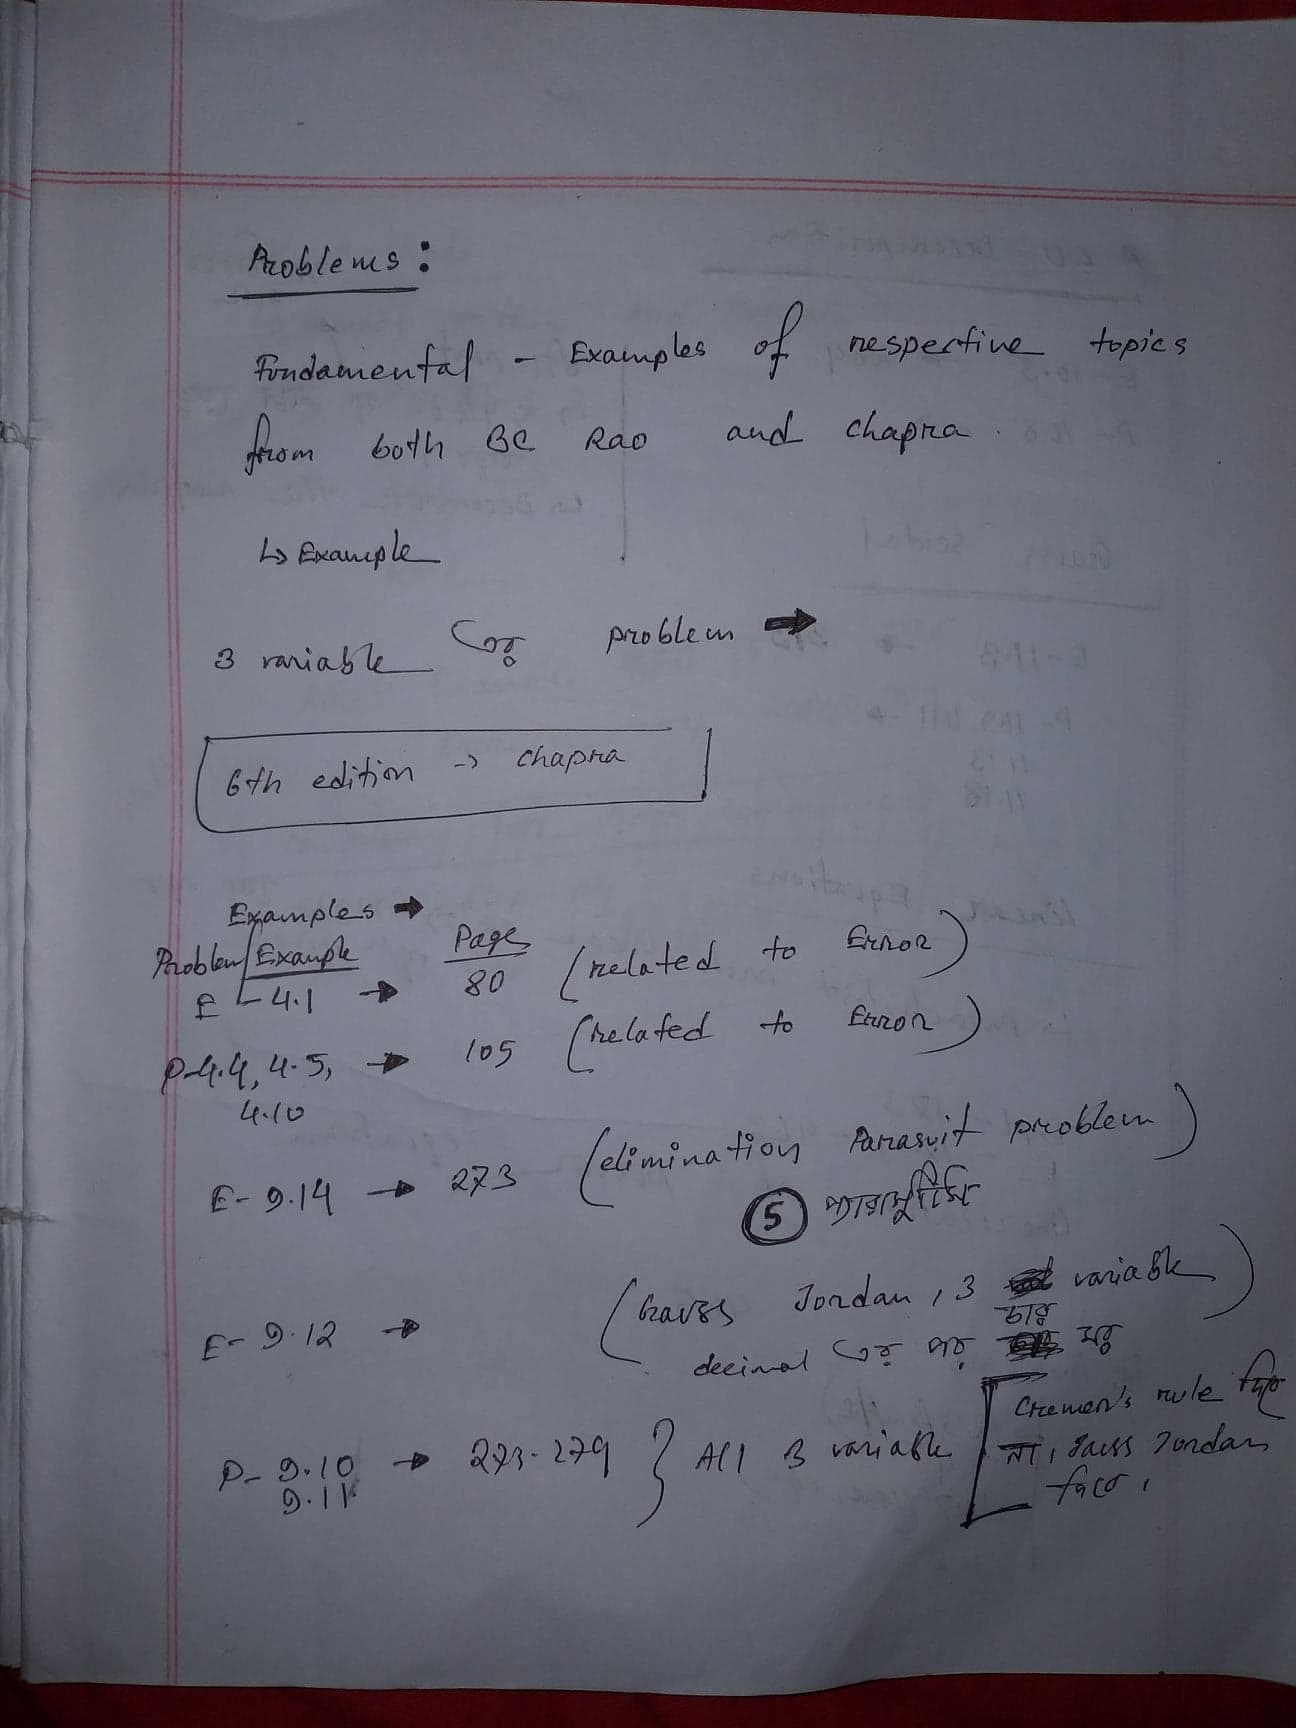 Problems :
Fundamental - Examples of respective topics
from both BC Rao and chapra .
↳ Example
3 variable এর problem →
6th edition → chapra
Examples →
Problem/Example Page
E - 4.1 → 80 (related to Error)
P-4.4, 4.5, → 105 (related to Error)
4.10
E- 9.14 → 273 (elimination Parasuit problem)
5 প্যারাসুটিস্ট
E- 9.12 → (Gauss Jordan, 3 variable
decimal এর পর চার ঘর)
P- 9.10 → 273-279 } All 3 variable [Cremer's rule দিয়ে
9.11 না, Gauss Jordan